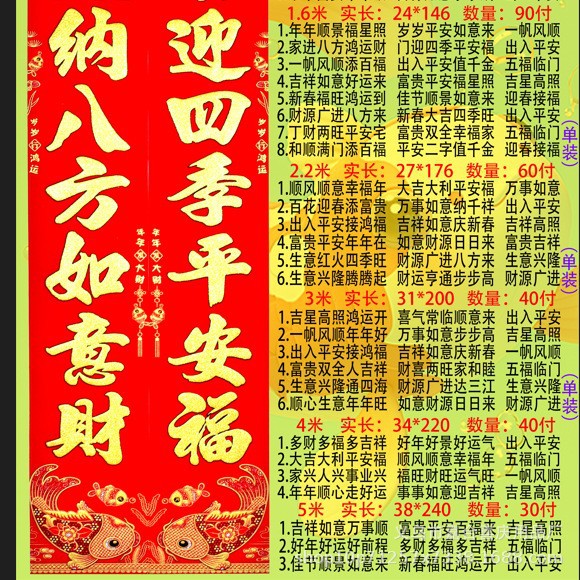 迎四季平安福
纳八方如意財
岁岁行鸿运
岁岁行鸿运
年年發大财
年年發大财
1.6米 实长：24*146 数量：90付
1.年年顺景福星照 岁岁平安如意来 一帆风顺
2.家进八方鸿运财 门迎四季平安福 出入平安
3.一帆风顺添百福 出入平安值千金 五福临门
4.吉祥如意好运来 富贵平安福星照 吉星高照
5.新春福旺鸿运到 佳节顺景如意来 迎春接福
6.财源广进八方来 新春大吉四季旺 出入平安
7.丁财两旺平安宅 富贵双全幸福家 五福临门
8.和顺满门添百福 平安二字值千金 迎春接福
(单装)
2.2米 实长：27*176 数量：60付
1.顺风顺意幸福年 大吉大利平安福 万事如意
2.百花迎春添富贵 万事如意纳千祥 出入平安
3.出入平安接鸿福 吉祥如意庆新春 吉星高照
4.富贵平安年年在 如意财源日日来 富贵吉祥
5.生意红火四季旺 财源广进八方来 生意兴隆
6.生意兴隆腾腾起 财运亨通步步高 财源广进
(单装)
3米 实长：31*200 数量：40付
1.吉星高照鸿运开 喜气常临顺意来 出入平安
2.一帆风顺年年好 万事如意步步高 吉星高照
3.出入平安接鸿福 吉祥如意庆新春 一帆风顺
4.富贵双全人吉祥 财喜两旺家和睦 五福临门
5.生意兴隆通四海 财源广进达三江 生意兴隆
6.顺心生意年年旺 如意财源日日来 财源广进
(单装)
4米 实长：34*220 数量：40付
1.多财多福多吉祥 好年好景好运气 出入平安
2.大吉大利平安福 顺风顺意幸福年 五福临门
3.家兴人兴事业兴 福旺财旺运气旺 一帆风顺
4.年年顺心走好运 事事如意迎吉祥 吉星高照
5米 实长：38*240 数量：30付
1.吉祥如意万事顺 富贵平安百福来 吉星高照
2.好年好运好前程 多财多福多吉祥 五福临门
3.佳节顺景如意来 新春福旺鸿运开 出入平安